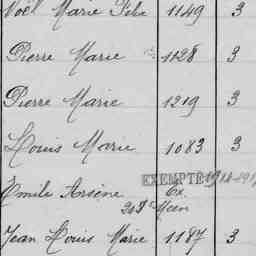 Noël Marie Félix 1149 3
Pierre Marie 1128 3
Pierre Marie 1219 3
Louis Marie 1083 3
EXEMPTÉ 1914-
Émile Arsène Ex.
20 Sn
Jean Louis Marie 1187 3